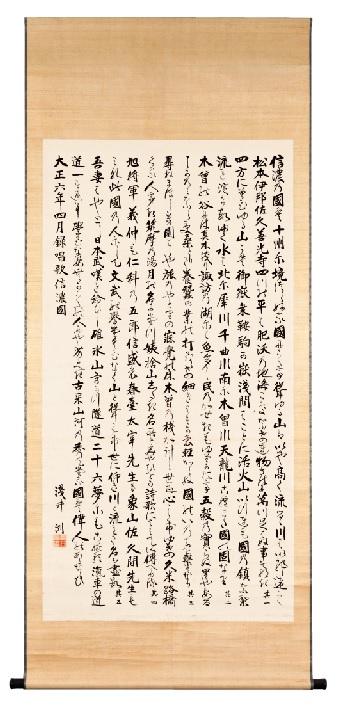 信濃の國は十州に境つらぬる國にして聳ゆる山はいや高く流るゝ川はいや遠し
松本伊那佐久善光寺四つの平は肥沃の地海こそなけれ物さはに萬たらはぬ事そなき 其一
四方に聳ゆる山々は御嶽乗鞍駒か嶽浅間はことに活火山いつれも國の鎮なり
流れ淀ます行く水は北に犀川千曲川南に木曽川天龍川これまた國の固なり 其二
木曽の谷には真木茂り諏訪の湖には魚多し民のかせきも豊にて五穀の實らぬ里やある
しかのみならす桑とりて蚕養の業の打ちひらけ細きよすかも輕からぬ國の命を 其三
尋ねまほしき園原や旅のやとりの寝覚の床木曽の桟かけし世も心してゆけ久米路橋
くる人多き筑摩の湯月の名にたつ姨捨山しるき名所と 詩歌に 其四
旭将軍義仲も仁科の五郎信盛も春臺太宰先生も象山佐久間先生も
皆此國の人にして文武の誉たくひなく山と聳えて世に仰き川と流れて名は盡す 其五
吾妻はやとし日本武嘆き給ひし碓氷山穿つ隧道二十六夢にもこゆる滊車の道
道一筋に學ひなは昔の人にや 古来山河の秀てたる國は偉人のある習ひ
大正六年四月録唱歌信濃國
浅井洌